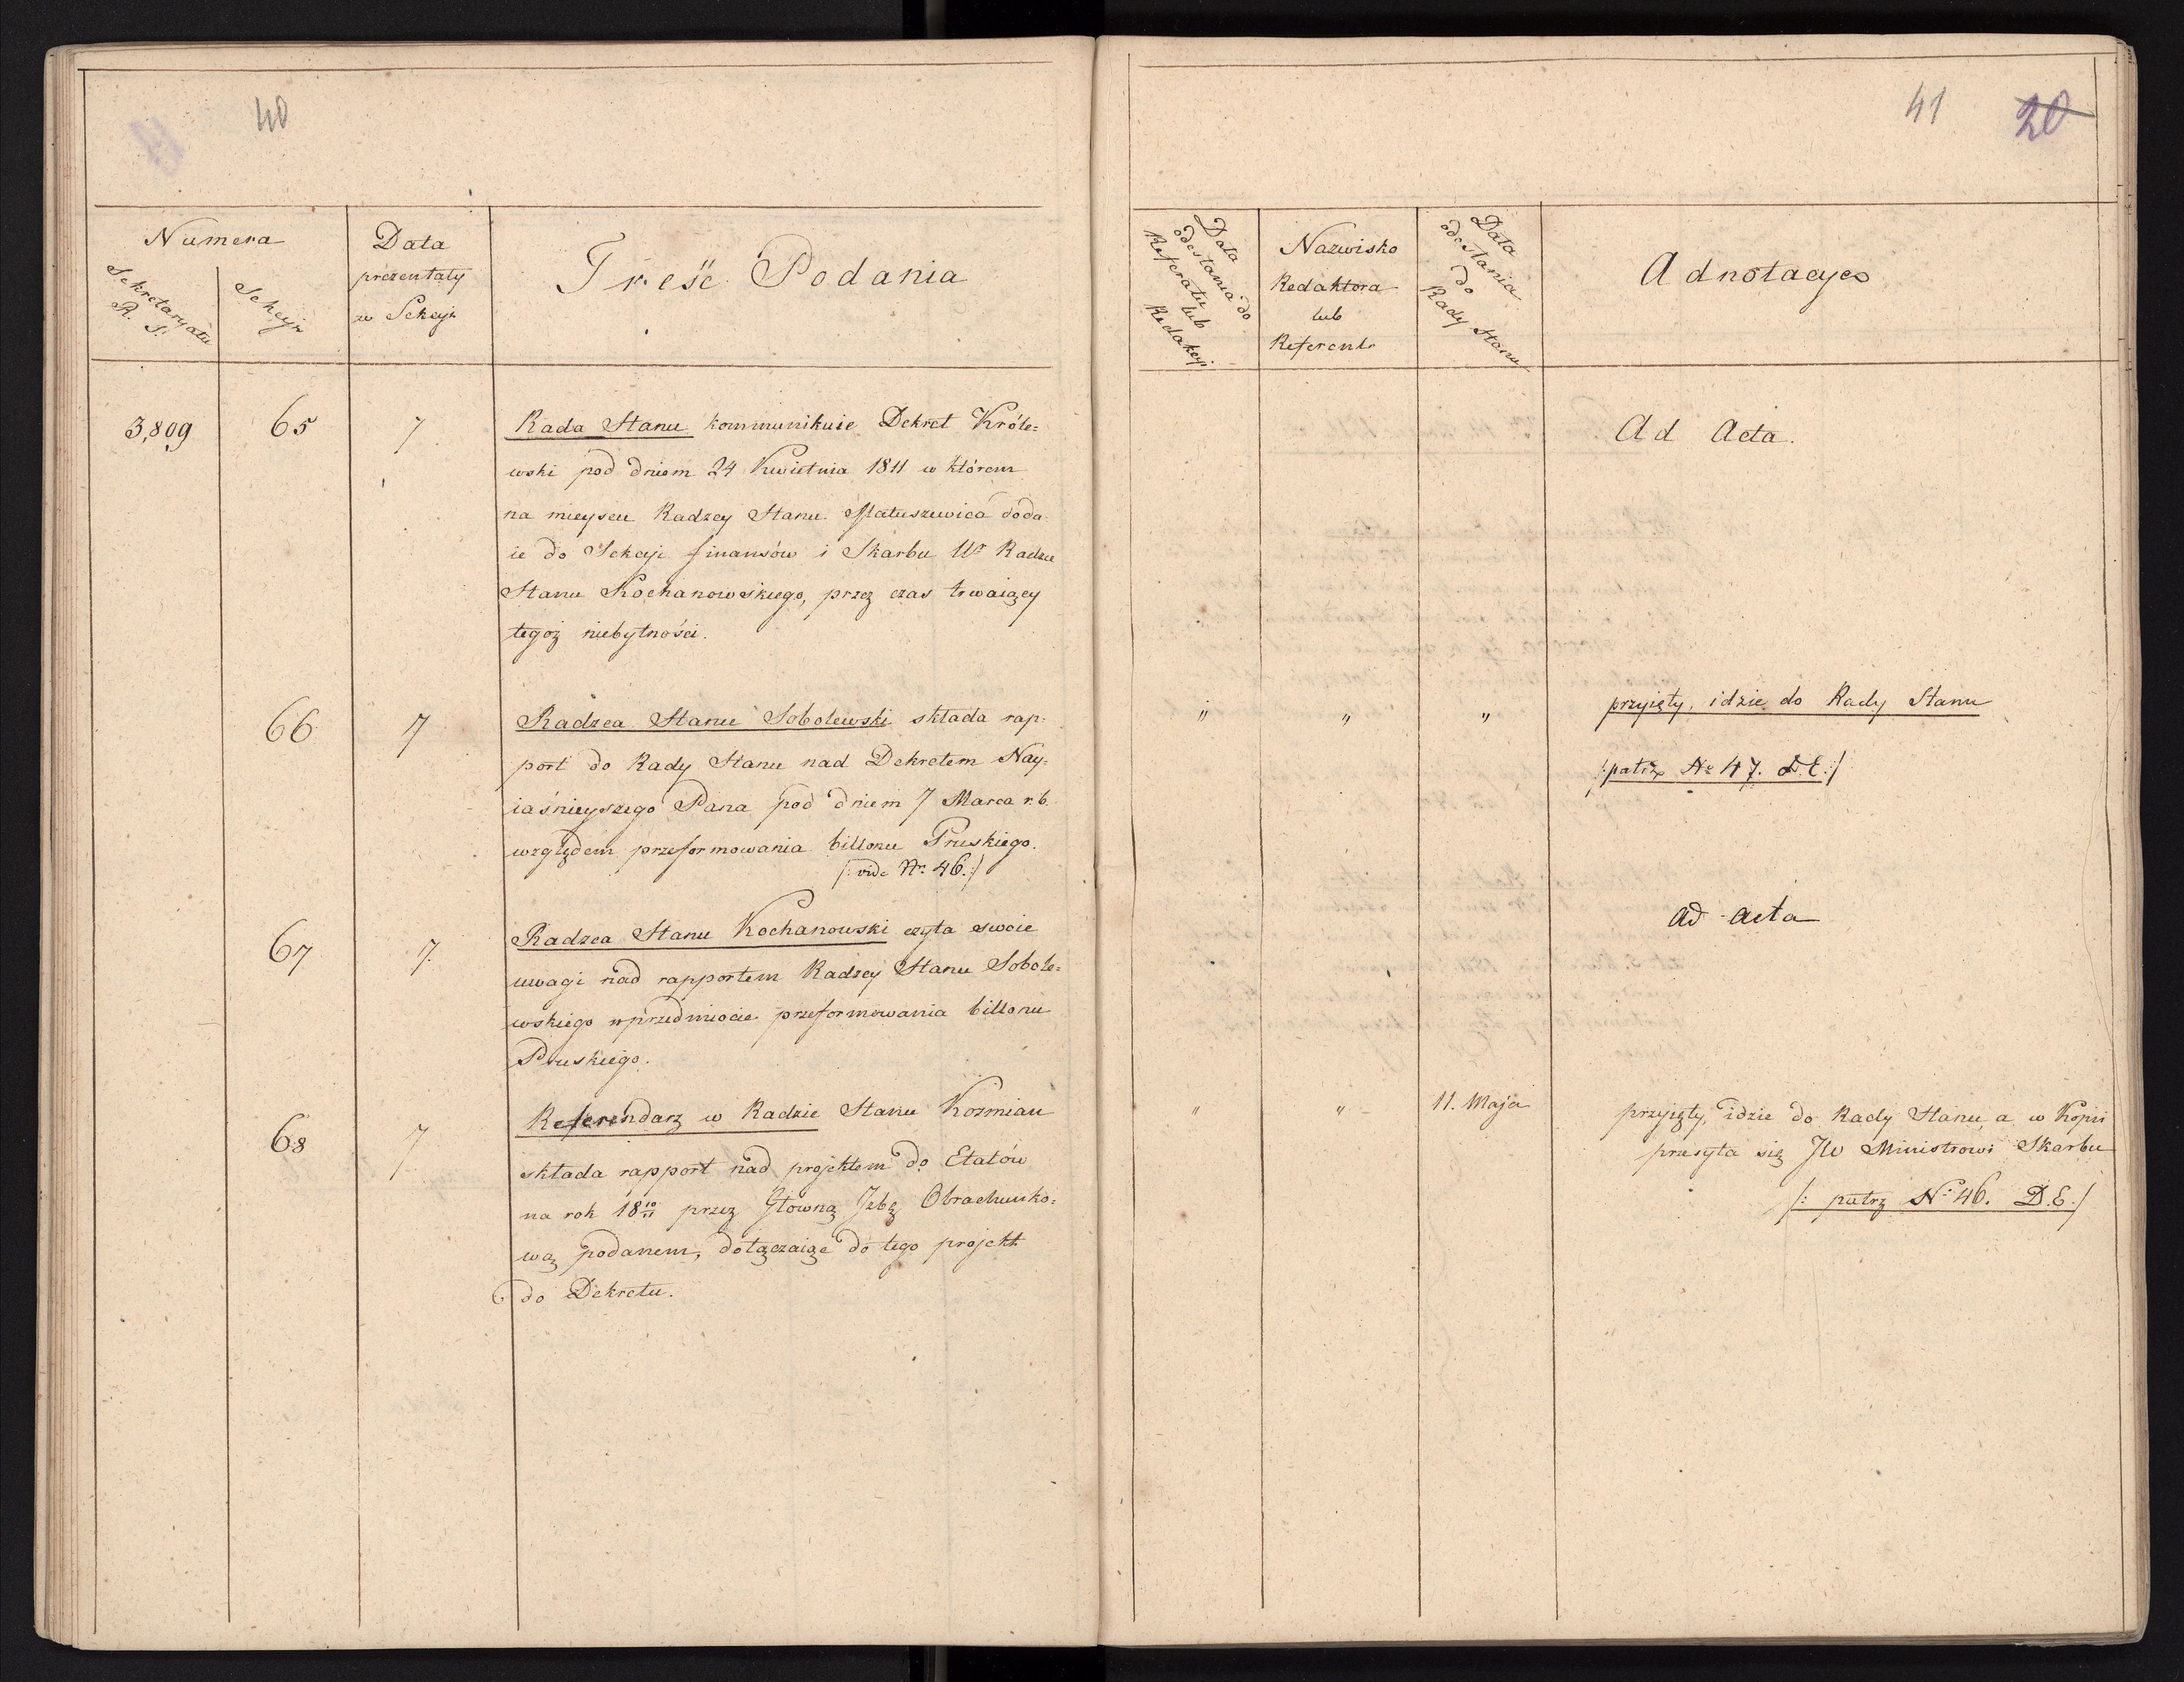 40
Numera
Sekretaryatu
R. S.
Sekcyi
Data
prezentaty
w Sekcyi
Treść Podania
3,809
65
7
Rada Stanu kommunikuie Dekret Króle=
wski pod dniem 24 Kwietnia 1811 w którem
na mieyscu Radzcy Stanu Matuszewica doda
ie do Sekcyi finansów i Skarbu Wº Radzce
Stanu Kochanowskiego, przez czas trwaiącey
tegoż niebytności.
66
7
Radzca Stanu Sobolewski składa rap=
port do Rady Stanu nad Dekretem Nay=
iaśnieyszego Pana pod dniem 7 Marca r.b.
względem przeformowania billonu Pruskiego.
/: vide Nr. 46.:/
67
7.
Radzca Stanu Kochanowski czyta swoie
uwagi nad rapportem Radzcy Stanu Sobole=
wskiego w przedmiocie przeformowania billonu
Pruskiego.
68
7
Referendarz w Radzie Stanu Kozmian
składa rapport nad projektem do Etatów
na rok 18 10/11 przez Główną Jzbę Obrachunko=
wą podanem, dołączaiąc do tego projekt
do Dekretu.
41
20
Data
odesłania do
Referatu lub
Redakcyi
Nazwisko
Redaktora
lub
Referenta
Data
odesłania
do
Rady Stanu
Adnotacye
Ad Acta.
" " "
przyięty, idzie do Rady Stanu
/:patrz Nº 47. D.E.:/
Ad Acta
" "
11. Maja
przyięty, idzie do Rady Stanu, a w Kopii
przesyła się JW Ministrowi Skarbu
/: patrz Nº 46. D.E.:/